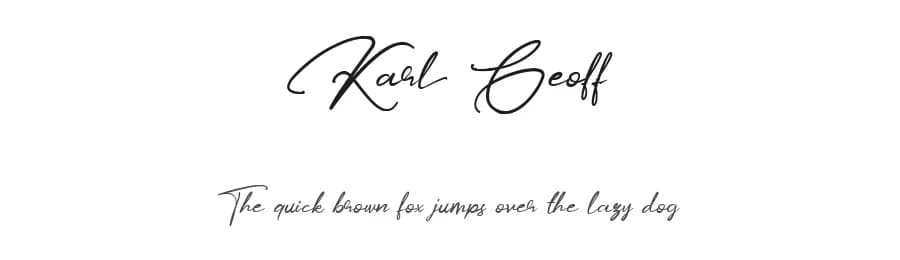 Karl Geoff
The quick brown fox jumps over the lazy dog